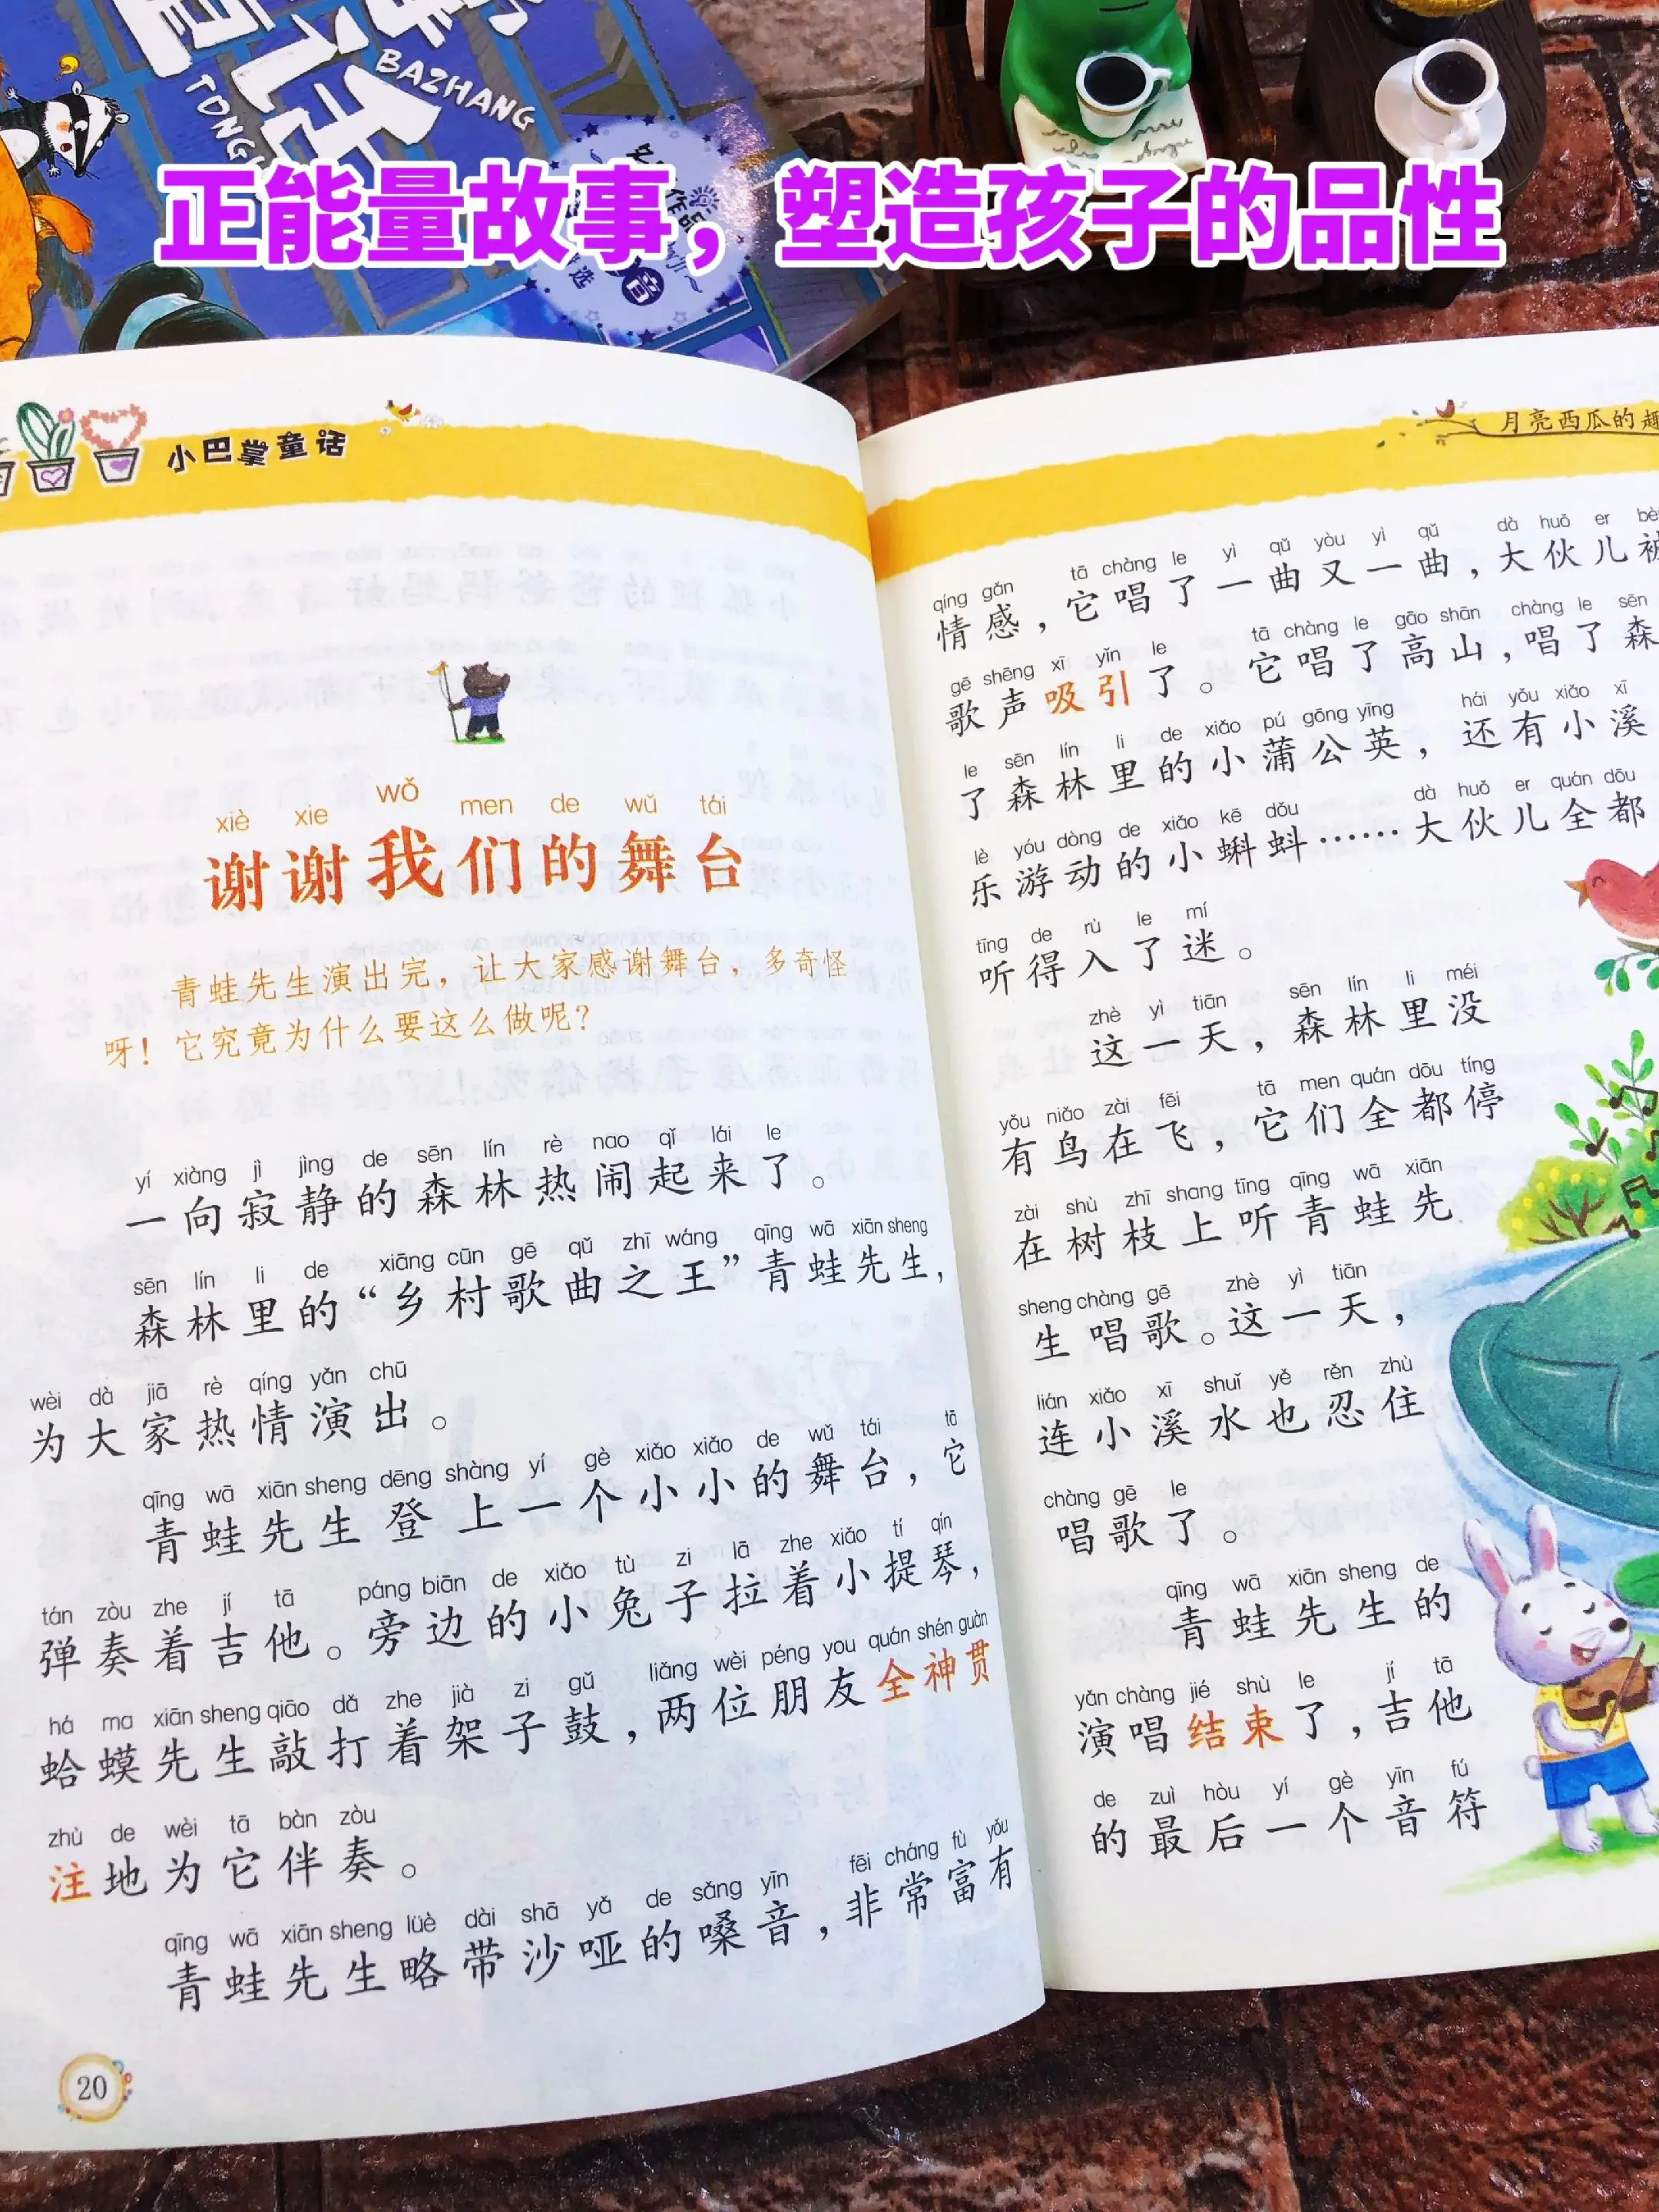 BAZHANG
正能量故事，塑造孩子的品性
小巴掌童话
xiè xie wǒ men de wǔ tái
谢谢我们的舞台
青蛙先生演出完，让大家感谢舞台，多奇怪
呀！它究竟为什么要这么做呢？
yí xiàng jì jìng de sēn lín rè nao qǐ lái le
一向寂静的森林热闹起来了。
sēn lín li de xiāng cūn gē qǔ zhī wáng qīng wā xiān sheng
森林里的“乡村歌曲之王”青蛙先生，
wèi dà jiā rè qíng yǎn chū
为大家热情演出。
qīng wā xiān sheng dēng shàng yí gè xiǎo xiǎo de wǔ tái tā
青蛙先生登上一个小小的舞台，它
tán zòu zhe jí tā páng biān de xiǎo tù zi lā zhe xiǎo tí qín
弹奏着吉他。旁边的小兔子拉着小提琴，
há ma xiān sheng qiāo dǎ zhe jià zi gǔ liǎng wèi péng you quán shén guàn
蛤蟆先生敲打着架子鼓，两位朋友全神贯
zhù de wèi tā bàn zòu
注地为它伴奏。
qīng wā xiān sheng lüè dài shā yǎ de sǎng yīn fēi cháng fù yǒu
青蛙先生略带沙哑的嗓音，非常富有
20
月亮西瓜的趣
qíng gǎn tā chàng le yì qǔ yòu yì qǔ dà huǒ er bèi
情感，它唱了一曲又一曲，大伙儿被
gē shēng xī yǐn le tā chàng le gāo shān chàng le sēn
歌声吸引了。它唱了高山，唱了森
le sēn lín li de xiǎo pú gōng yīng hái yǒu xiǎo xī
了森林里的小蒲公英，还有小溪
lè yóu dòng de xiǎo kē dǒu dà huǒ er quán dōu
乐游动的小蝌蚪……大伙儿全都
tīng de rù le mí
听得入了迷。
zhè yì tiān sēn lín li méi
这一天，森林里没
yǒu niǎo zài fēi tā men quán dōu tíng
有鸟在飞，它们全都停
zài shù zhī shang tīng qīng wā xiān
在树枝上听青蛙先
sheng chàng gē zhè yì tiān
生唱歌。这一天，
lián xiǎo xī shuǐ yě rěn zhù
连小溪水也忍住
chàng gē le
唱歌了。
qīng wā xiān sheng de
青蛙先生的
yǎn chàng jié shù le jí tā
演唱结束了，吉他
de zuì hòu yí gè yīn fú
的最后一个音符